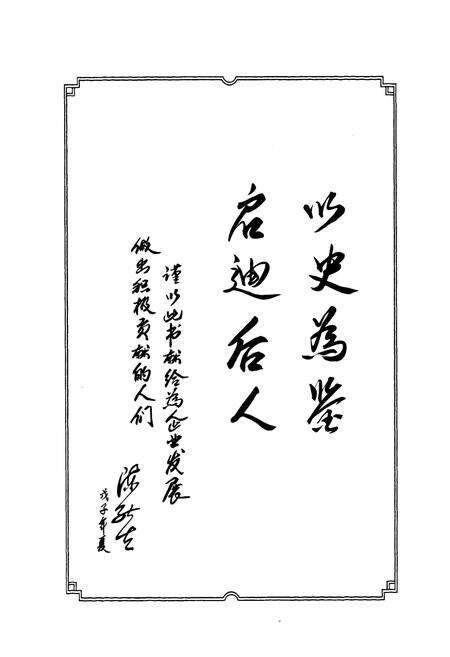 以史為鉴
启迪后人
谨以此书献给為企业发展
做出积极贡献的人们
戊子年夏